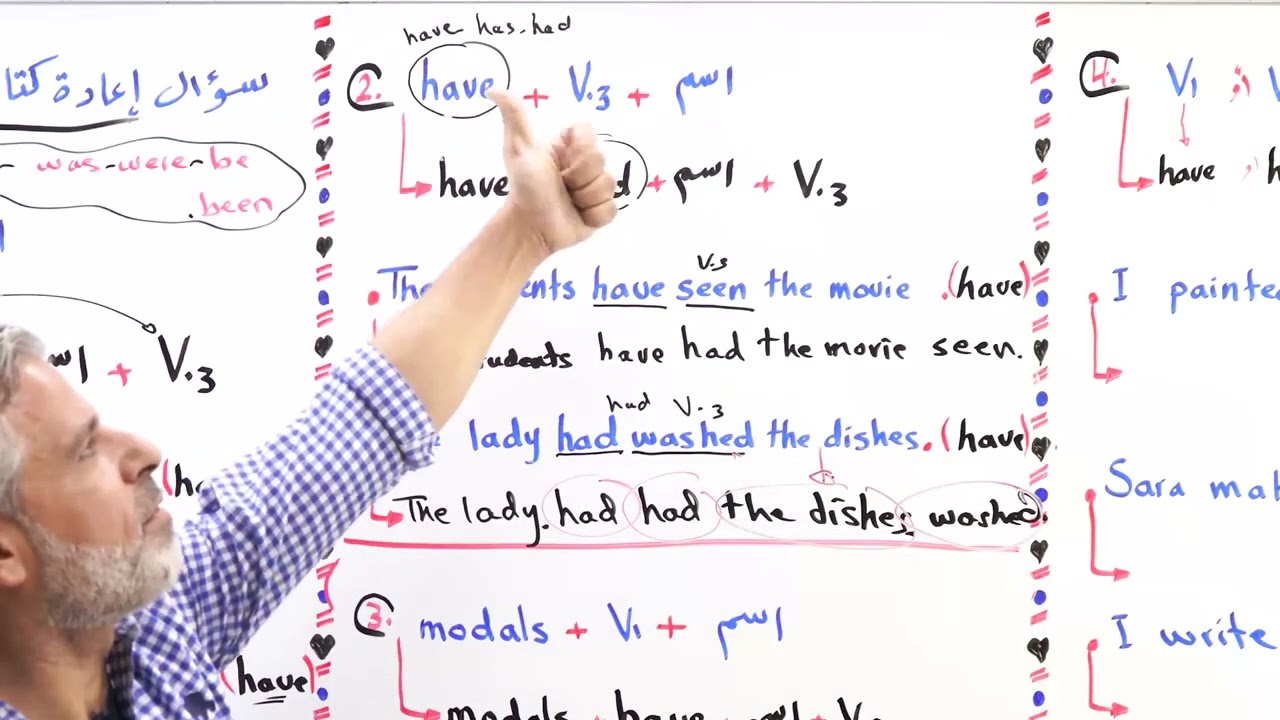 سؤال إعادة كتا
was-were-be
.been
+ V.3
(have)
have-has-had
2. have + V.3 + اسم
have + اسم + V.3
V.3
have seen the movie .(have)
have had the movie seen.
had V.3
lady had washed the dishes. (have)
The lady. had had the dishes washed.
3. modals + V1 + اسم
modals + have
4. V1
have
I
Sara
I write